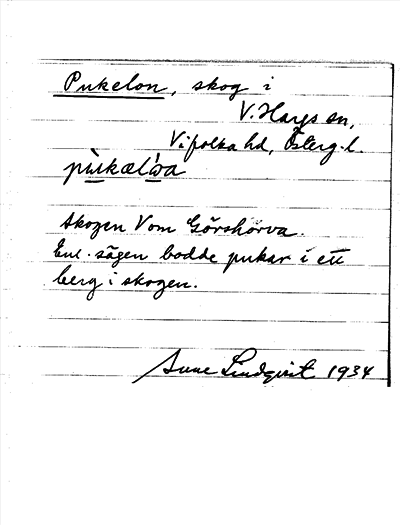 Pukelon, skog i
V. Hargs sn,
Vifolka hd, Österg. l.
pùkælṡa
Skogen V om Görshorva.
Enl. sägen bodde pukar i ett
berg i skogen.
Sune Lindqvist 1934